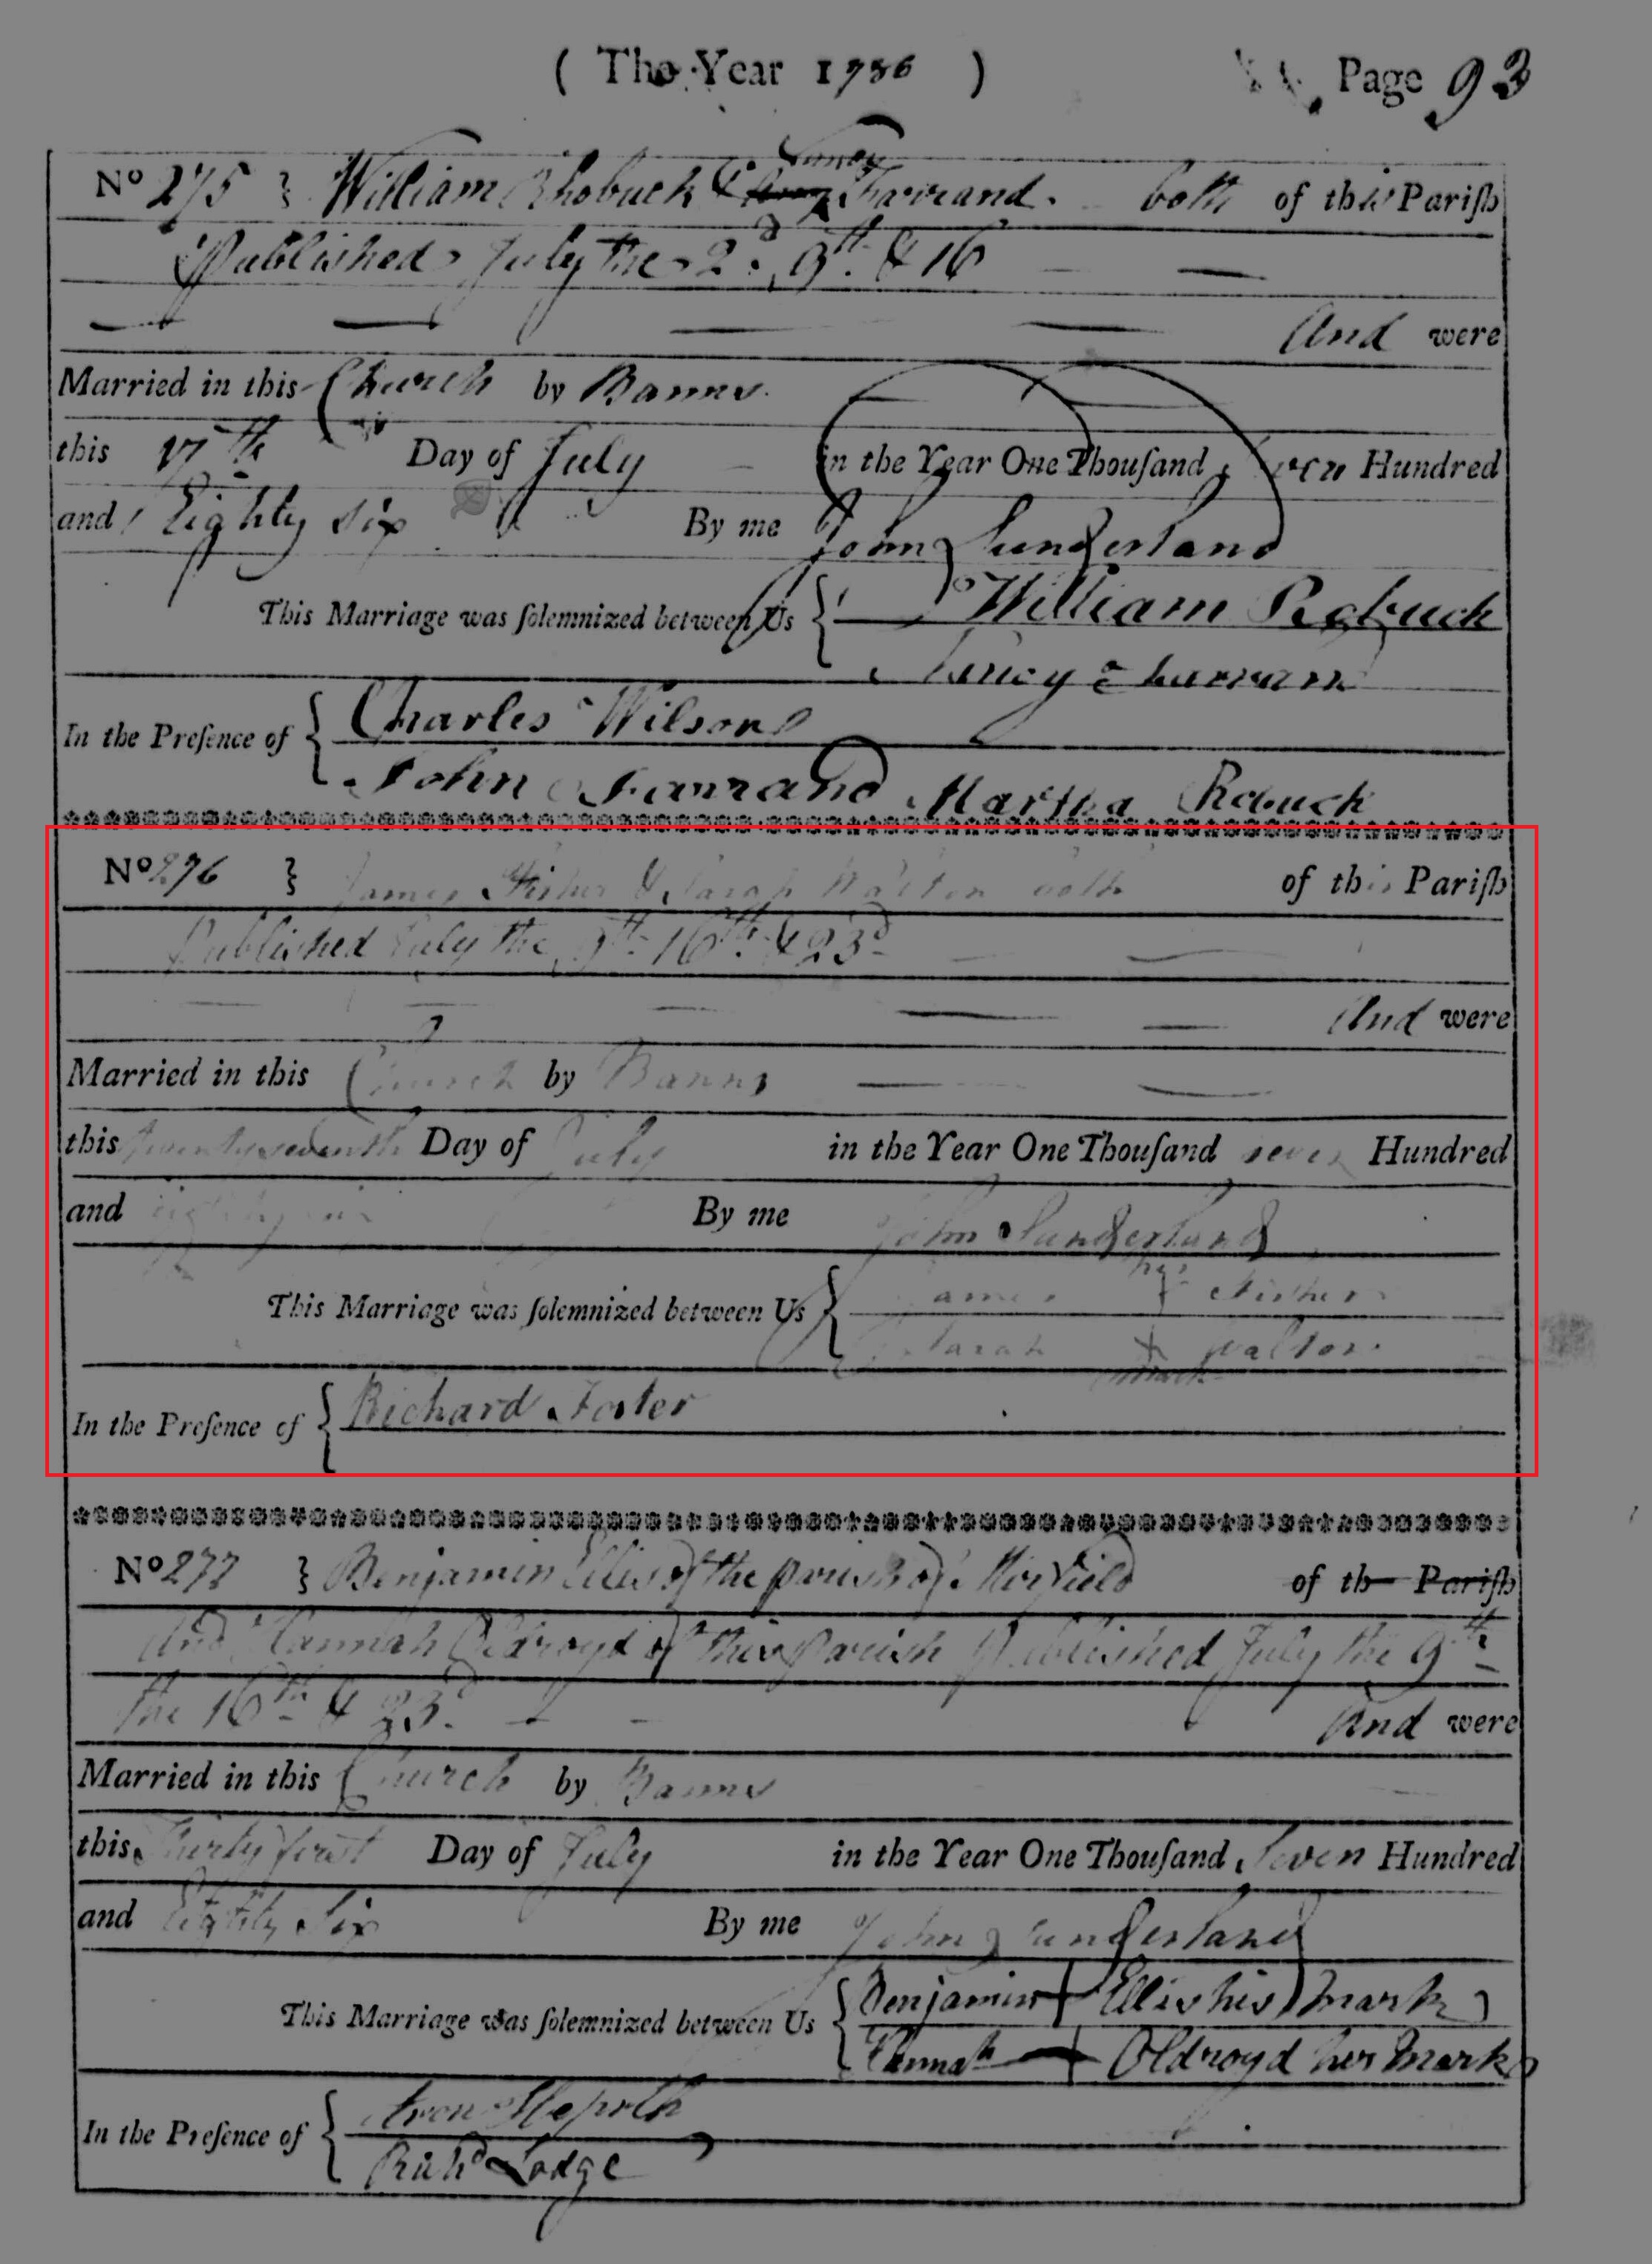 ( The Year 1786 ) Page 93
No 275 } William Rhobuck & Nancy Farrand. both of this Pariſh
Published July the 2d, 9th. & 16
And were
Married in this Church by Banns.
this 17th Day of July in the Year One Thouſand Seven Hundred
and Eighty six By me John Sunderland
This Marriage was ſolemnized between Us { William Robuck
Nancy Farrand
In the Preſence of { Charles Wilson
John Farrand Martha Robuck
No 276 } James Fisher & Sarah Walton both of this Pariſh
Published July the 9th 16th & 23d
And were
Married in this Church by Banns
this twenty seventh Day of July in the Year One Thouſand seven Hundred
and eighty six By me John Sunderland
his
This Marriage was ſolemnized between Us { James Fisher
Sarah X Walton
mark
In the Preſence of { Richard Foster
No 277 } Benjamin Ellis of the parish of Mirfield of th Pariſh
And Hannah Oldroyd of this parish Published July the 9th
the 16th & 23d. And were
Married in this Church by Banns
this Thirty first Day of July in the Year One Thouſand Seven Hundred
and Eighty Six By me John Sunderland
This Marriage was ſolemnized between Us { Benjamin + Ellis his mark
Hannah + Oldroyd her mark
In the Preſence of { Aron Hepwth
Richd Lodge